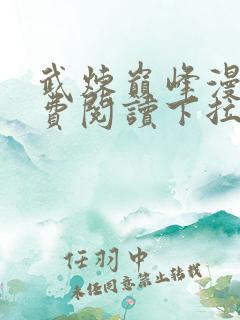 武煉巔峰漫
費閱讀下拉
任羽中
未經同意禁止轉載